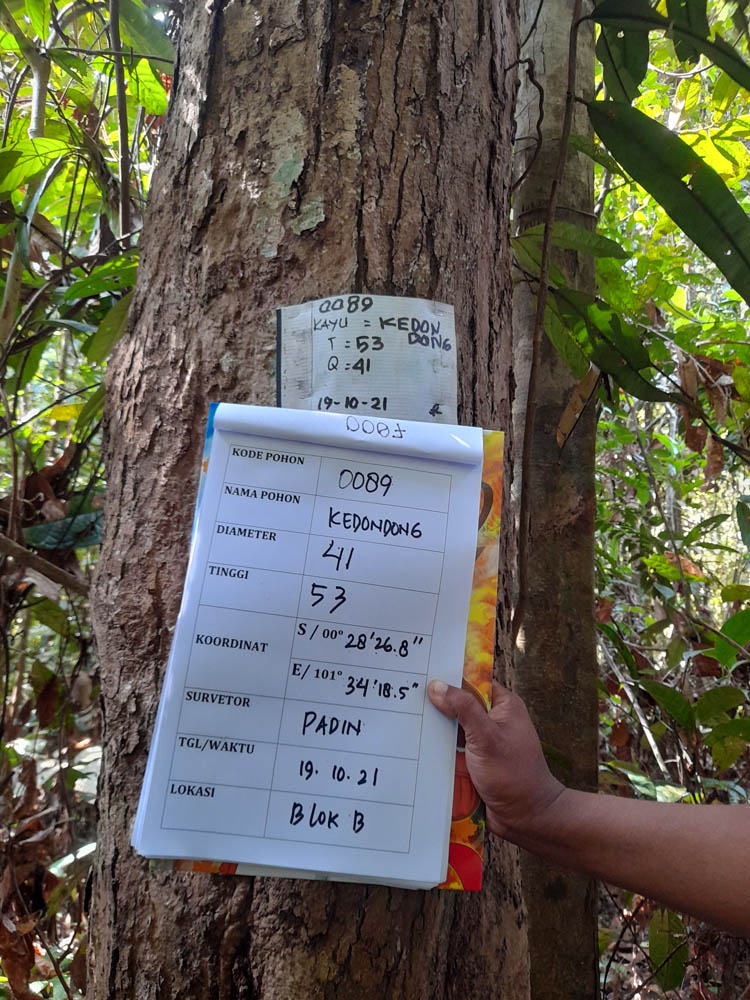 0089
KAYU = KEDON
DONG
T = 53
Q = 41
19-10-21
KODE POHON 0089
NAMA POHON KEDONDONG
DIAMETER 41
TINGGI 53
KOORDINAT S / 00° 28'26.8"
E/ 101° 34'18.5"
SURVETOR PADIN
TGL/WAKTU 19. 10. 21
LOKASI BLOK B